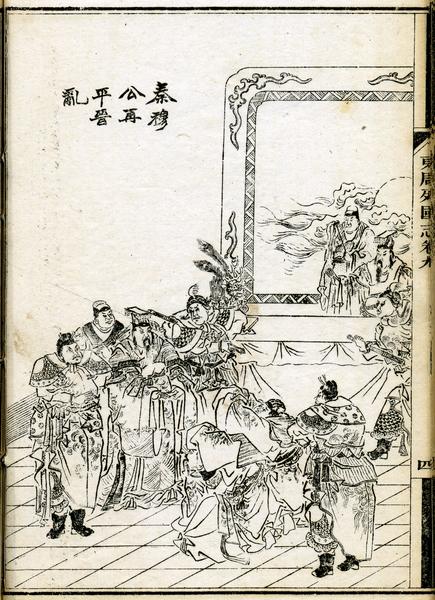 秦穆
公再
平晉
亂
東周列國志卷九
四